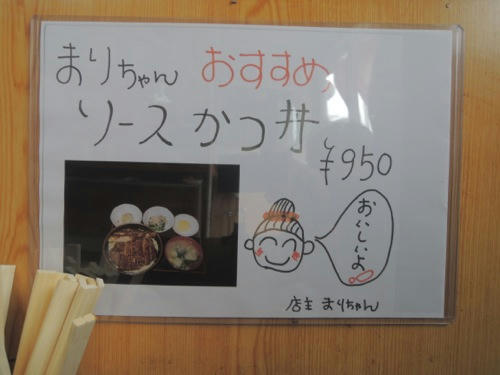 まりちゃん おすすめ
ソースかつ丼
¥950
おいしいよ
店主 まりちゃん